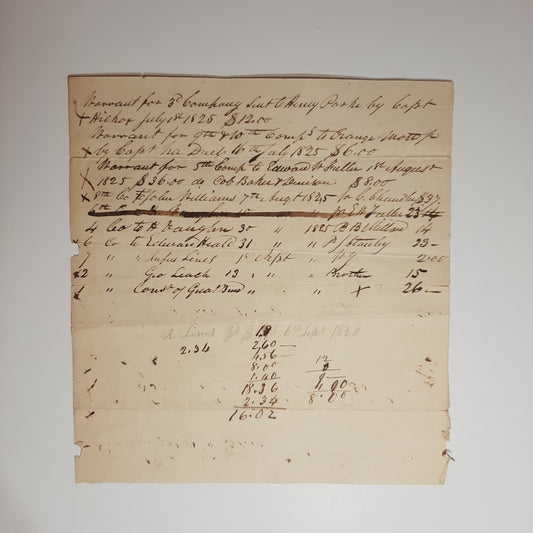 Warrant for 3d Company Sent to Henry Parks by Capt
x Hickox July 1st 1825 $12.00
Warrant for 9th & 10th Comps to Orange
x by Capt Ira 16th July 1825 $6.00
x Warrant for 5th Comp to Edward W Fuller 1st August
1825 $36.00 do Cob Baker & Denison $8.00
x 8th Co to John Williams 7th Augt 1825 pr C. Chandley $37,
Fuller 23
4 Co to H Vaughn 30 " 1825 B B 14
6 Co to Edward Heald 31 " P Stanly 23–
7 " Rufus Lines 1st Sept " 2.00
2 " Geo Leach 13 " " Brother 15
1 " Const of Quar " " x 26–
R Lines 6th Sept 1826
2.34 2,60–
4.56–
8.00
1.40
18.36
2.34
16.02
12
4.00
8.00